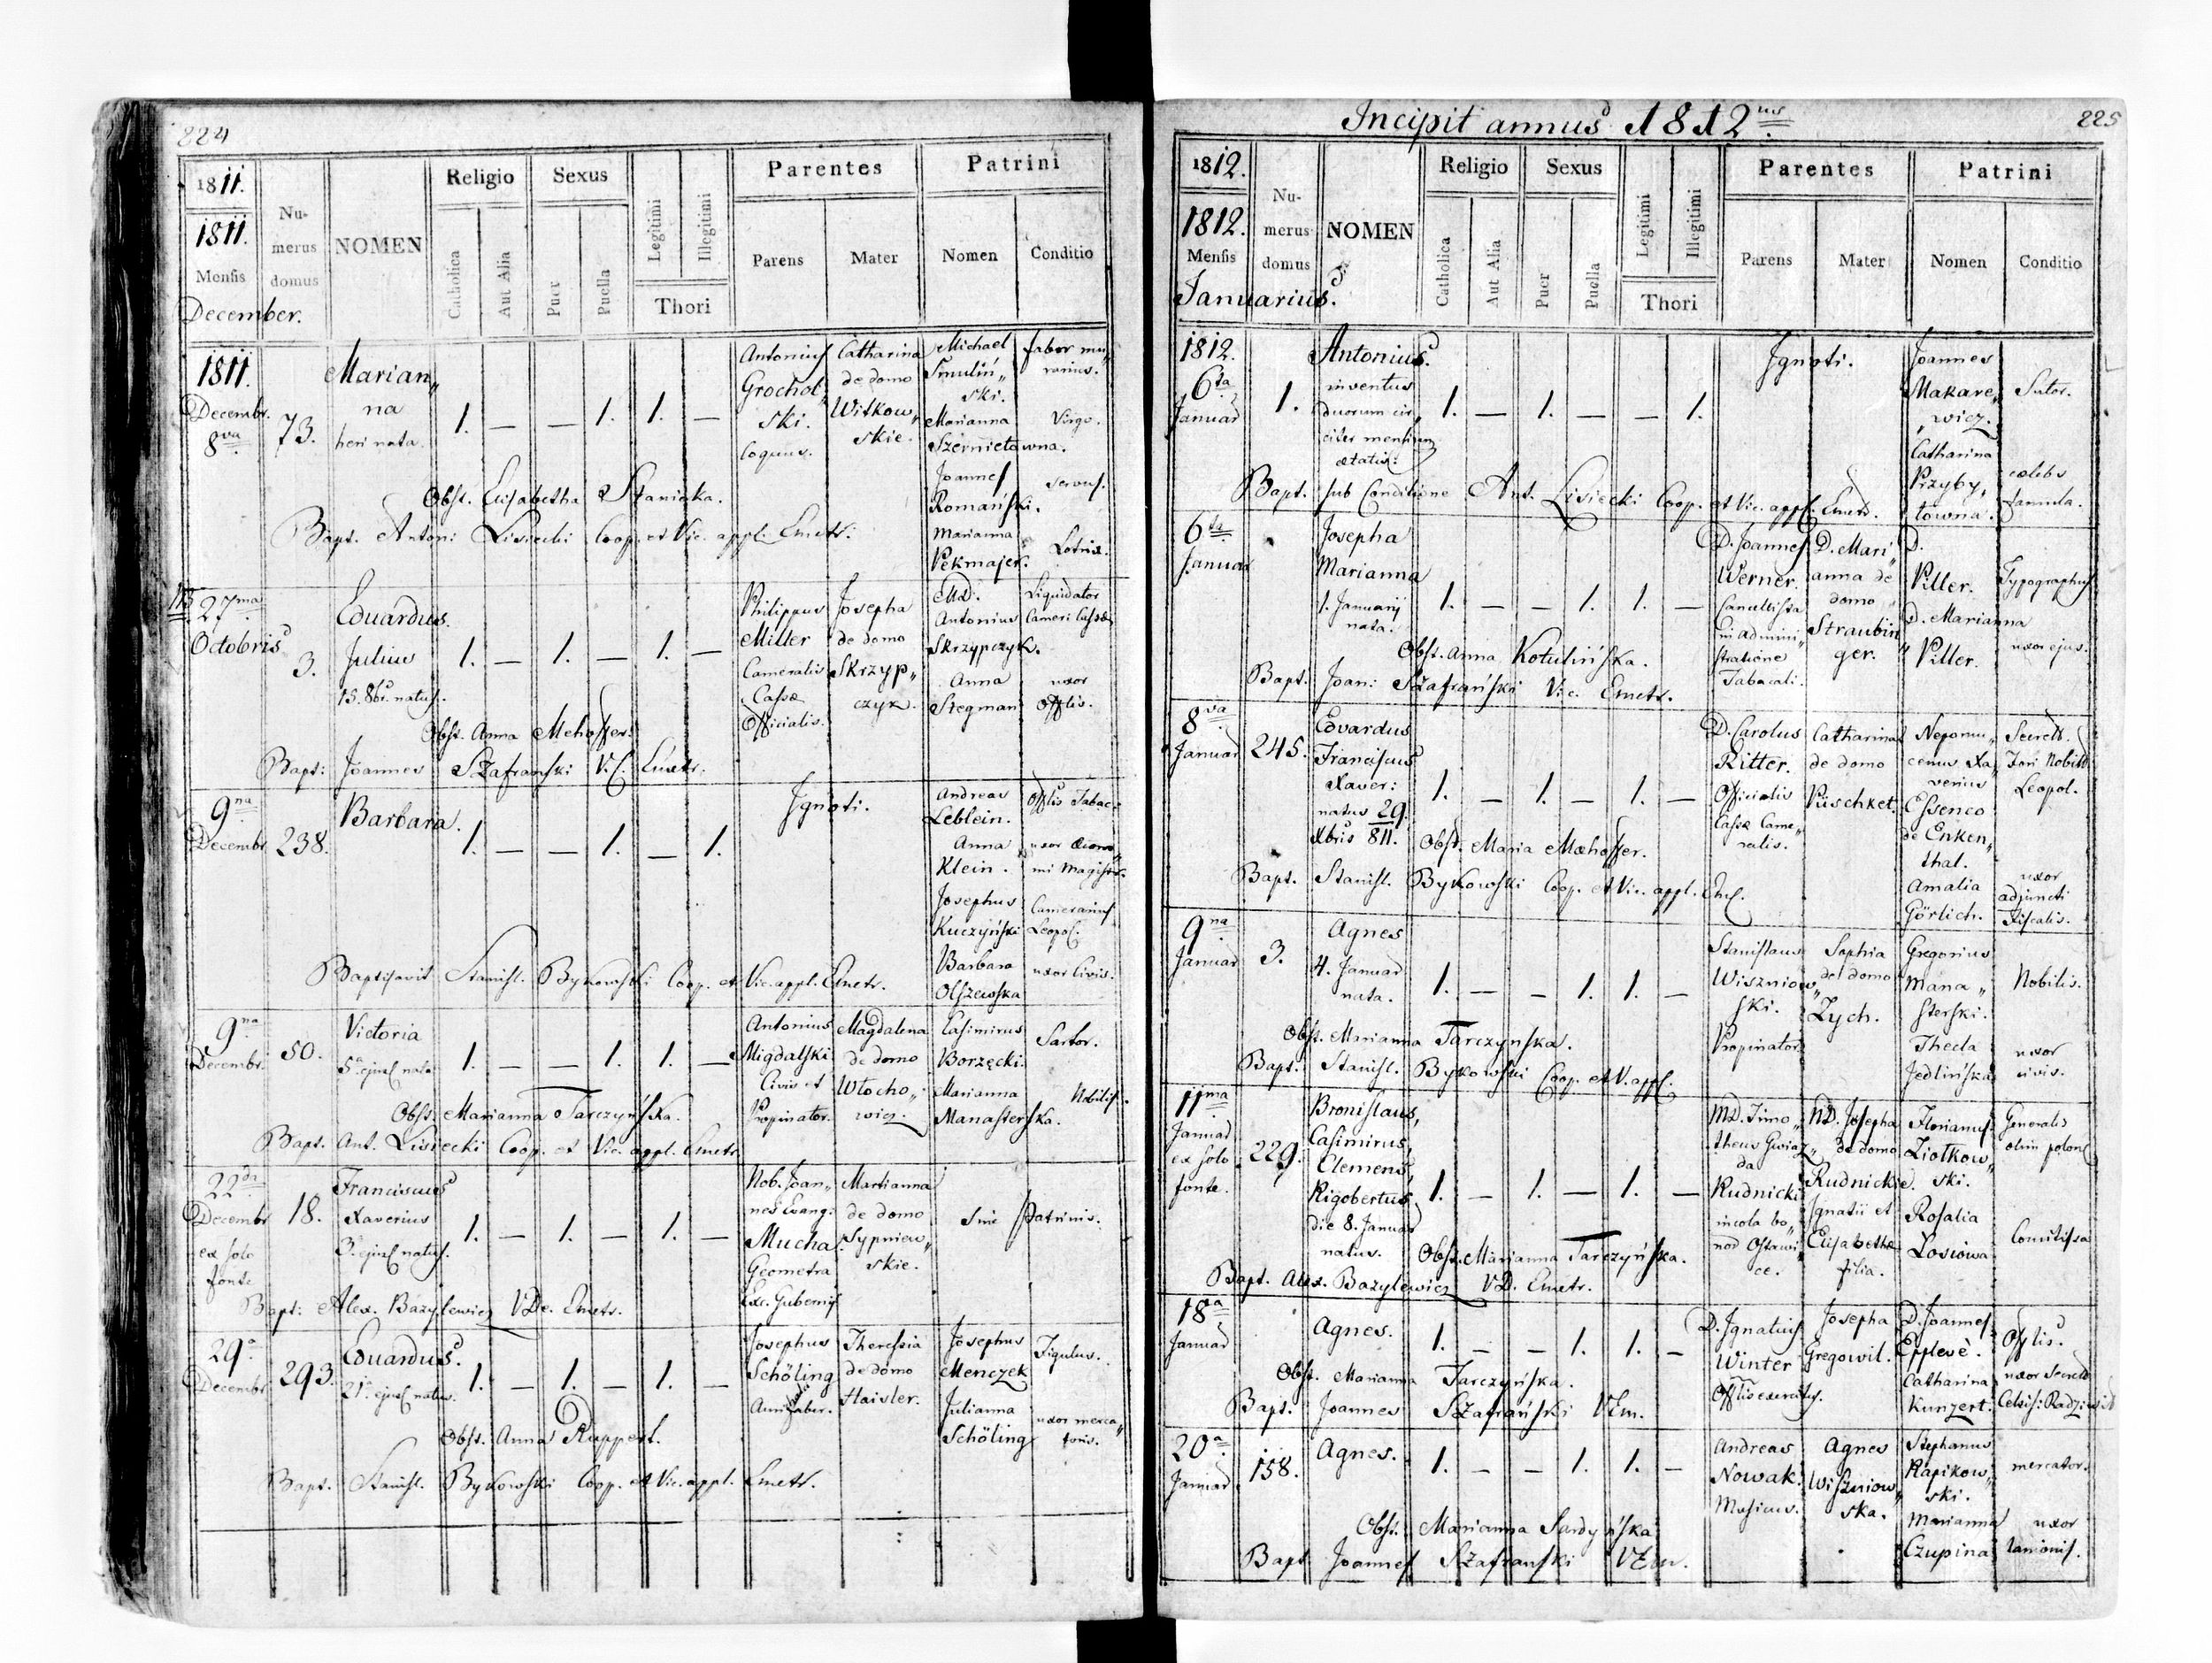 224
1811.
1811.
Mensis
December.
Nu-
merus
domus
NOMEN
Religio
Catholica
Aut Alia
Sexus
Puer
Puella
Legitimi
Illegitimi
Thori
Parentes
Parens
Mater
Patrini
Nomen
Conditio
1811.
Decembr.
8va
73.
Marian„
na
heri nata.
1. — — 1. 1. —
Antonius
Grochol„
ski.
Coquus.
Catharina
de domo
Witkow„
skie.
Michael
Smuliń„
ski.
Marianna
Szernietowna.
Joannes
Romański.
Marianna
Pekmajer.
faber mu„
rarius.
Virgo.
servus.
Lotrix.
Obst. Elisabetha Staniska.
Bapt. Antoni Lisiecki Coop. et Vic. appl. Emetr.
27ma
Octobris
3.
Eduardus.
Julius
15. 8bri natus.
1. — 1. — 1. —
Philippus
Miller
Cameralis
Cassæ
Officialis.
Josepha
de domo
Skrzyp„
czyk.
MD.
Antonius
Skrzypczyk.
Anna
Stegman
Liquidator
Camer: Cassæ
uxor
Offlis.
Obst. Anna Mehoffer.
Bapt: Joannes Szafranski V.C. Emetr.
9na
Decembr
238.
Barbara.
1. — — 1. — 1.
Ignoti.
Andreas
Leblein.
Anna
Klein.
Josephus
Kuczyński
Barbara
Olszewska
Offlis Tabac:
uxor
mi Magistr.
Camerarius
Leopol.
uxor Civis.
Baptisavit Stanisl. Bykowski Coop. et Vic. appl. Emetr.
9na
Decembr.
50.
Victoria
5a ejusd nata
1. — — 1. 1. —
Antonius
Migdalski
Civis et
Propinator.
Magdalena
de domo
Włocho„
wicz.
Casimirus
Borzęcki.
Marianna
Manasterska.
Sartor.
Nobilis.
Obst. Marianna Tarczyńska.
Bapt. Ant. Lisiecki Coop. et Vic. appl. Emetr.
22da
Decembr
ex solo
fonte
18.
Franciscus
Xaverius
3a ejusd natus.
1. — 1. — 1. —
Nob. Joan„
nes Evang:
Mucha
Geometra
Exc. Gubernij
Marianna
de domo
Sypniew„
skie.
Sine Patrinis.
Bapt: Alex. Bazylewicz VDe. Emetr.
29a
Decembr
293.
Eduardus.
21a ejusd natus.
1. — 1. — 1. —
Josephus
Schöling
Aurifaber.
Theressia
de domo
Haisler.
Josephus
Menczek
Julianna
Schöling
Figulus.
uxor merca„
toris.
Obst. Anna Ruppert.
Bapt. Stanisl. Bykowski Coop. et Vic. appl. Emetr.
Incipit annus 1812us
225
1812.
1812.
Mensis
Januarius.
Nu-
merus
domus
NOMEN
Religio
Catholica
Aut Alia
Sexus
Puer
Puella
Legitimi
Illegitimi
Thori
Parentes
Parens
Mater
Patrini
Nomen
Conditio
1812.
6ta
Januar
1.
Antonius.
inventus
duorum cir„
citer mensium
ætatis:
1. — 1. — — 1.
Ignoti.
Joannes
Makare„
wicz.
Catharina
Przyby„
towna.
Sutor.
cælebs
famula.
Bapt. sub Conditione Ant. Lisiecki Coop. et Vic. appl. Emetr.
6ta
Januar
Josepha
Marianna
1. Januarij
nata.
1. — — 1. 1. —
D. Joannes
Werner.
Cancellista
in admini„
stratione
Tabacali.
D. Mari„
anna de
domo
Straubin„
ger.
D.
Piller.
D. Marianna
Piller.
Typographus
uxor ejus.
Obst. Anna Kotulińska.
Bapt: Joan: Szafrański Vic. Emetr.
8va
Januar
245.
Edvardus
Franciscus
Xaver:
natus 29.
Xbris 811.
1. — 1. — 1. —
D. Carolus
Ritter.
Officialis
Cassæ Came„
ralis.
Catharina
de domo
Püschket.
Nepomu„
cenus Xa„
verius
Essenco
de Enken„
thal.
Amalia
Görlich.
Secrets.
Fori Nobil.
Leopol.
uxor
adjuncti
Fiscalis.
Obst. Maria Mæhoffer.
Bapt. Stanisl. Bykowski Coop. et Vic. appl. Em.
9na
Januar
3.
Agnes
4. Januar
nata.
1. — — 1. 1. —
Stanislaus
Wiszniow„
ski.
Propinator
Sophia
de domo
Zych.
Gregorius
Mana„
sterski.
Thecla
Jedlińska
Nobilis.
uxor
civis.
Obst. Marianna Tarczynska.
Bapt. Stanisl. Bykowski Coop. et V. appl.
11ma
Januar
ex solo
fonte.
229.
Bronislaus,
Casimirus,
Clemens,
Rigobertus,
die 8. Januar
natus.
1. — 1. — 1. —
MD. Timo„
theus Gwiaz„
da
Rudnicki
incola bo„
nor Ostawi„
ce.
MD. Josepha
de domo
Rudnickie.
Ignatii et
Elisabethæ
filia.
Florianus
Ziotkow„
ski.
Rosalia
Łosiowa
Generalis
olim polon
Comitissa
Obst. Marianna Tarczyńska.
Bapt. Alex. Bazylewicz VD. Emetr.
18va
Januar
Agnes.
1. — — 1. 1. —
D. Ignatius
Winter
Offlis exercitus.
Josepha
Gregowil.
D. Joannes
Epplevè.
Catharina
Kunzert.
Offlis.
uxor Secret
Celsis: Radziwił
Obst. Marianna Tarczyńska.
Bapt. Joannes Szafrański VEm.
20a
Januar
158.
Agnes.
1. — — 1. 1. —
Andreas
Nowak.
Musicus.
Agnes
Wiszniow„
ska.
Stephanus
Rapikow„
ski.
Marianna
Czupina
mercator.
uxor
lanionis.
Obst. Marianna Sardyńska
Bapt Joannes Szafranski VEm.